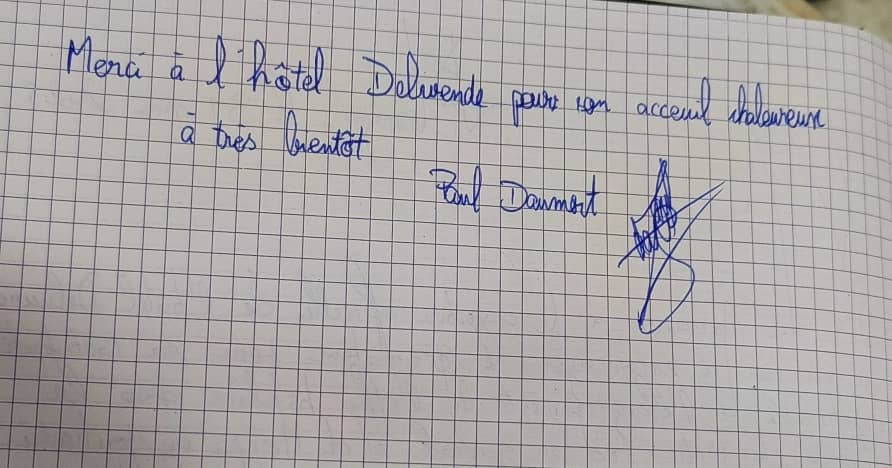 Merci à l'hôtel Delivrende pour son acceuil chaleureux
à très bientôt
Paul Daumont